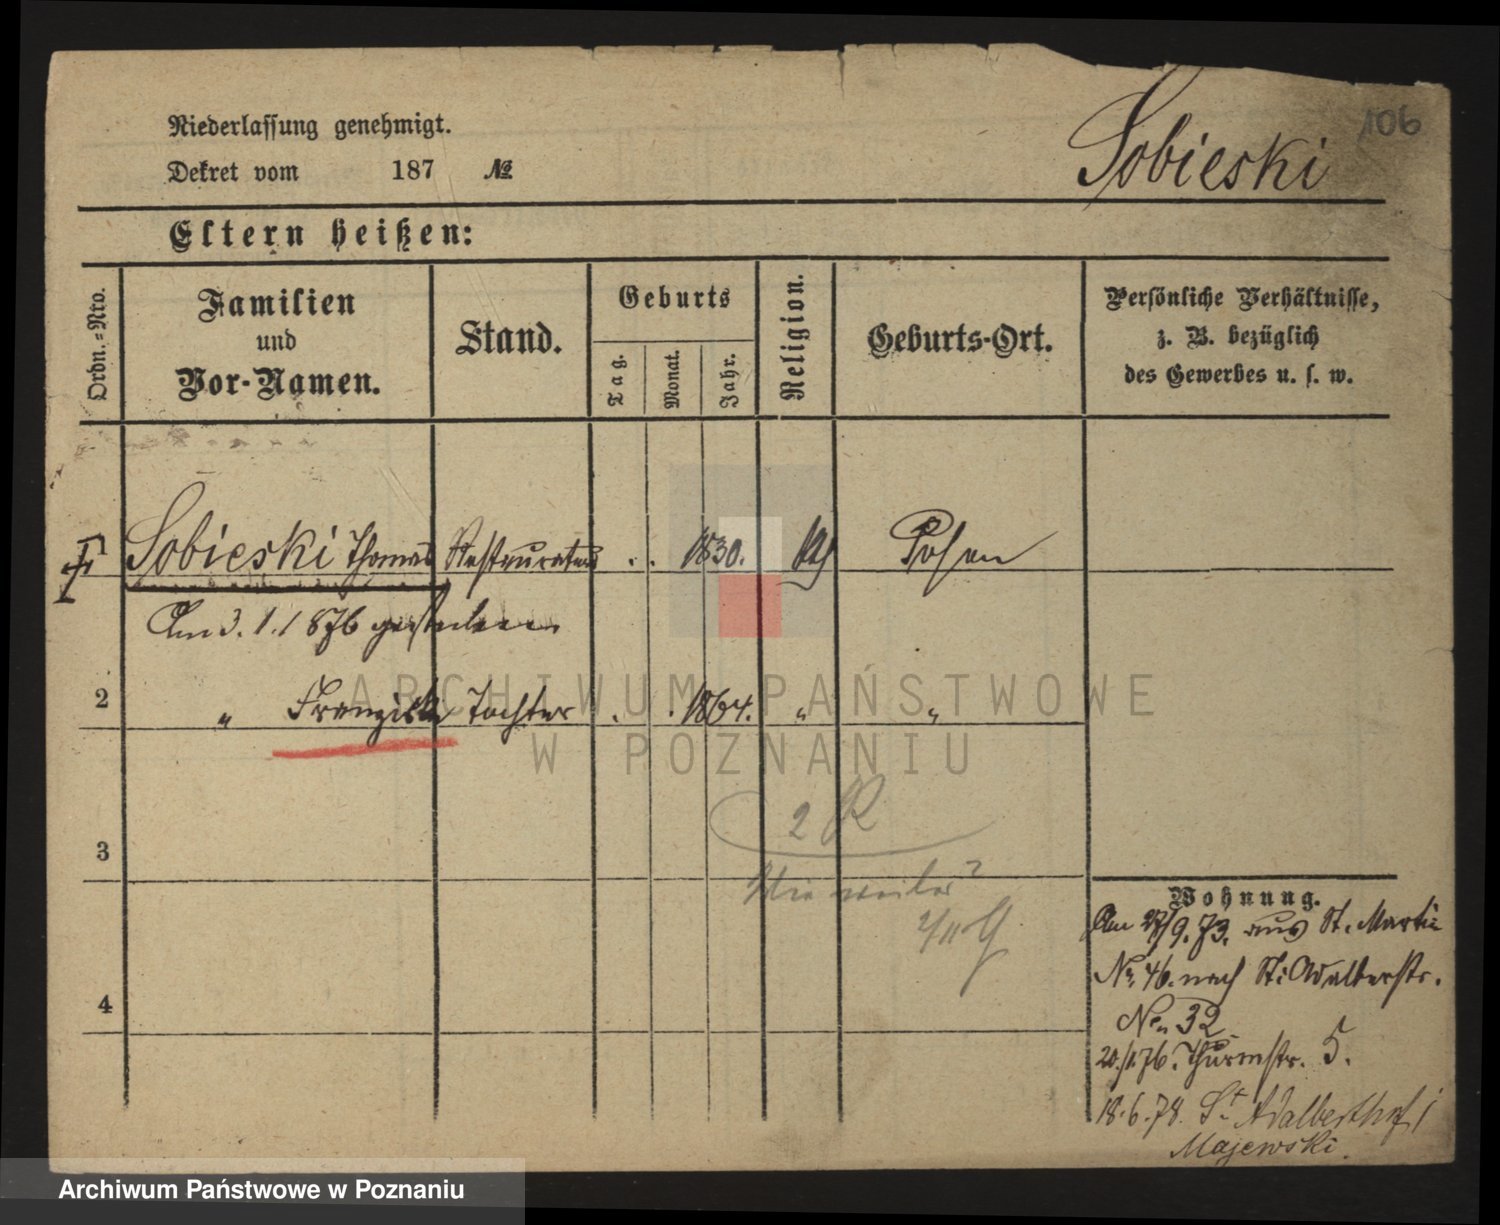 106
Niederlassung genehmigt.
Dekret vom 187 №
Sobieski
Eltern heißen:
Ordn.=Nro.
Familien und Vor-Namen.
Stand.
Geburts
Tag.
Monat.
Jahr.
Religion.
Geburts-Ort.
Persönliche Verhältnisse,
z. B. bezüglich
des Gewerbes u. s. w.
Sobieski Thomas Restaurateur . . 1830. kth Posen
Am 3. 1. 1876 gestorben
2 " Franziska Tochter . . 1864. " "
ARCHIWUM PAŃSTWOWE
W POZNANIU
2 R
3
Wohnung.
Am 27/9. 73. aus St. Martin
No. 46. nach St. Adalbertstr.
No. 32
4
20./1.76. Thurmstr. 5.
18.6.78. St. Adalberthof 1
Majewski.
Archiwum Państwowe w Poznaniu